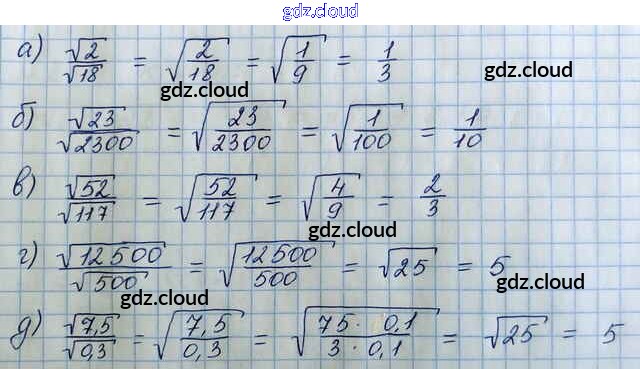 gdz.cloud
а) √2/√18 = √(2/18) = √(1/9) = 1/3
gdz.cloud gdz.cloud
б) √23/√2300 = √(23/2300) = √(1/100) = 1/10
gdz.cloud gdz.cloud
в) √52/√117 = √(52/117) = √(4/9) = 2/3
gdz.cloud
г) √12500/√500 = √(12500/500) = √25 = 5
gdz.cloud gdz.cloud
д) √7,5/√0,3 = √(7,5/0,3) = √(75 · 0,1/3 · 0,1) = √25 = 5
gdz.cloud